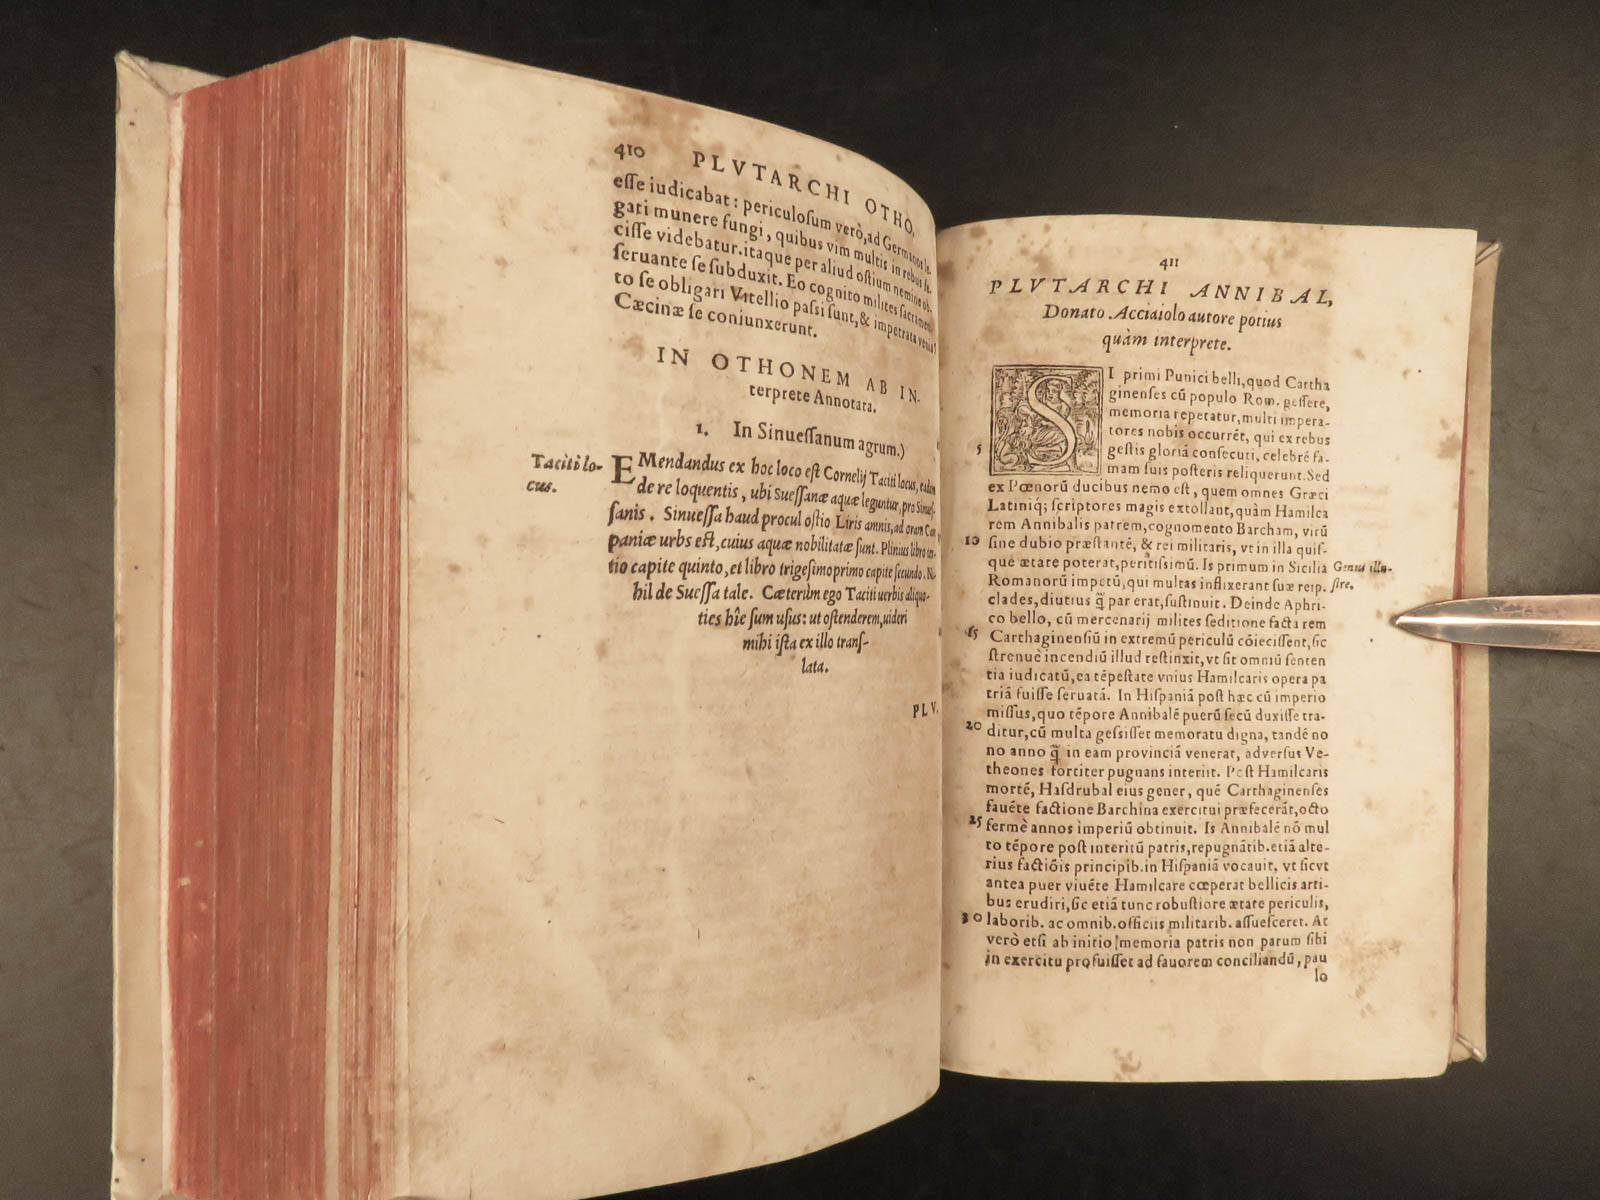 410 PLVTARCHI OTHO,
esse iudicabat: periculosum verò, ad Germanos le-
gati munere fungi, quibus vim multis in rebus fe-
cisse videbatur. itaque per aliud ostium nemine ob-
seruante se subduxit. Eo cognito milites sacramen-
to se obligari Vitellio passi sunt, & impetrata venia
Cæcinæ se coniunxerunt.
IN OTHONEM AB IN-
terprete Annotata.
1. In Sinuessanum agrum.)
Taciti lo-
cus.
EMendandus ex hoc loco est Cornelij Taciti locus, eadem
de re loquentis, ubi Suessanæ aquæ leguntur, pro Sinues-
sanis. Sinuessa haud procul ostio Liris amnis, ad oram Cam
paniæ urbs est, cuius aquæ nobilitatæ sunt. Plinius libro ter-
tio capite quinto, et libro trigesimoprimo capite secundo. Ni-
hil de Suessa tale. Cæterùm ego Taciti uerbis aliquo-
ties hîc sum usus: ut ostenderem, uideri
mihi ista ex illo trans-
lata.
PLV.
411
PLVTARCHI ANNIBAL,
Donato Acciaiolo autore potius
quàm interprete.
SI primi Punici belli, quod Cartha
ginenses cū populo Rom. gessere,
memoria repetatur, multi impera-
tores nobis occurrēt, qui ex rebus
5 gestis gloriā consecuti, celebrē fa-
mam suis posteris reliquerunt. Sed
ex Pœnorū ducibus nemo est, quem omnes Græci
Latiniq; scriptores magis extollant, quàm Hamilca
rem Annibalis patrem, cognomento Barcham, virū
10 sine dubio præstantē, & rei militaris, vt in illa quis-
que ætate poterat, peritissimū. Is primum in Sicilia
Genus illu-
stre.
Romanorū impetū, qui multas inflixerant suæ reip.
clades, diutius q̄ par erat, sustinuit. Deinde Aphri-
co bello, cū mercenarij milites seditione facta rem
15 Carthaginensiū in extremū periculū cōiecissent, sic
strenuè incendiū illud restinxit, vt sit omniū senten
tia iudicatū, ea tēpestate vnius Hamilcaris opera pa
triā fuisse seruatā. In Hispaniā post hæc cū imperio
missus, quo tēpore Annibalē puerū secū duxisse tra-
20 ditur, cū multa gessisset memoratu digna, tandē no
no anno q̄ in eam prouinciā venerat, adversus Ve-
theones fortiter pugnans interiit. Post Hamilcaris
mortē, Hasdrubal eius gener, quē Carthaginenses
fauēte factione Barchina exercitui præfecerāt, octo
25 fermè annos imperiū obtinuit. Is Annibalē nō mul
to tēpore post interitū patris, repugnātib. etiā alte-
rius factiōis principib. in Hispaniā vocauit, vt sicvt
antea puer viuēte Hamilcare cœperat bellicis arti-
bus erudiri, sic etiā tunc robustiore ætate periculis,
30 laborib. ac omnib. officiis militarib. assuesceret. At
verò etsi ab initio memoria patris non parum sibi
in exercitu profuisset ad fauorem conciliandū, pau
lo